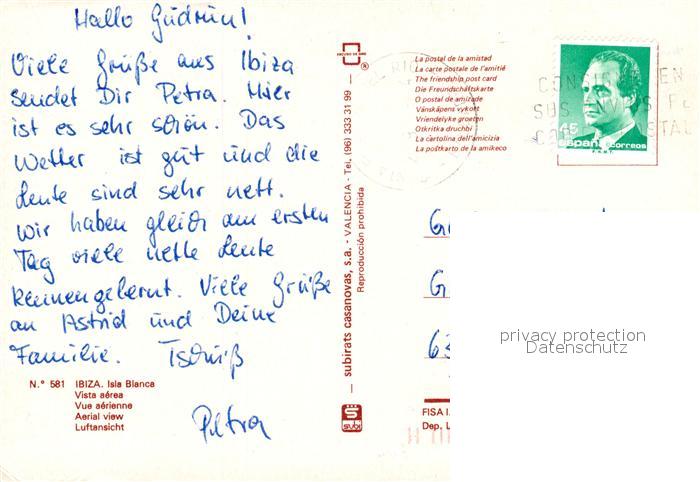 Hallo Gudrun!
Viele Grüße aus Ibiza
sendet Dir Petra. Hier
ist es sehr schön. Das
Wetter ist gut und die
Leute sind sehr nett.
Wir haben gleich am ersten
Tag viele nette Leute
kennengelernt. Viele Grüße
an Astrid und Deine
Familie. Tschüß
Petra
N.° 581 IBIZA. Isla Blanca
Vista aérea
Vue aérienne
Aerial view
Luftansicht
subirats casanovas, s.a. - VALENCIA - Tel. (96) 333 31 99 - ®
Reproducción prohibida
SUBI
La postal de la amistad
La carte postale de l'amitié
The friendship post card
Die Freundschaftskarte
O postal de amizade
Vänskapens vykort
Vriendelyke groeten
Otkritka druchbi
La cartolina dell'amicizia
La poŝtkarto de la amikeco
45
españa correos
SUS
G
G
63
privacy protection
Datenschutz
FISA I.
Dep. L